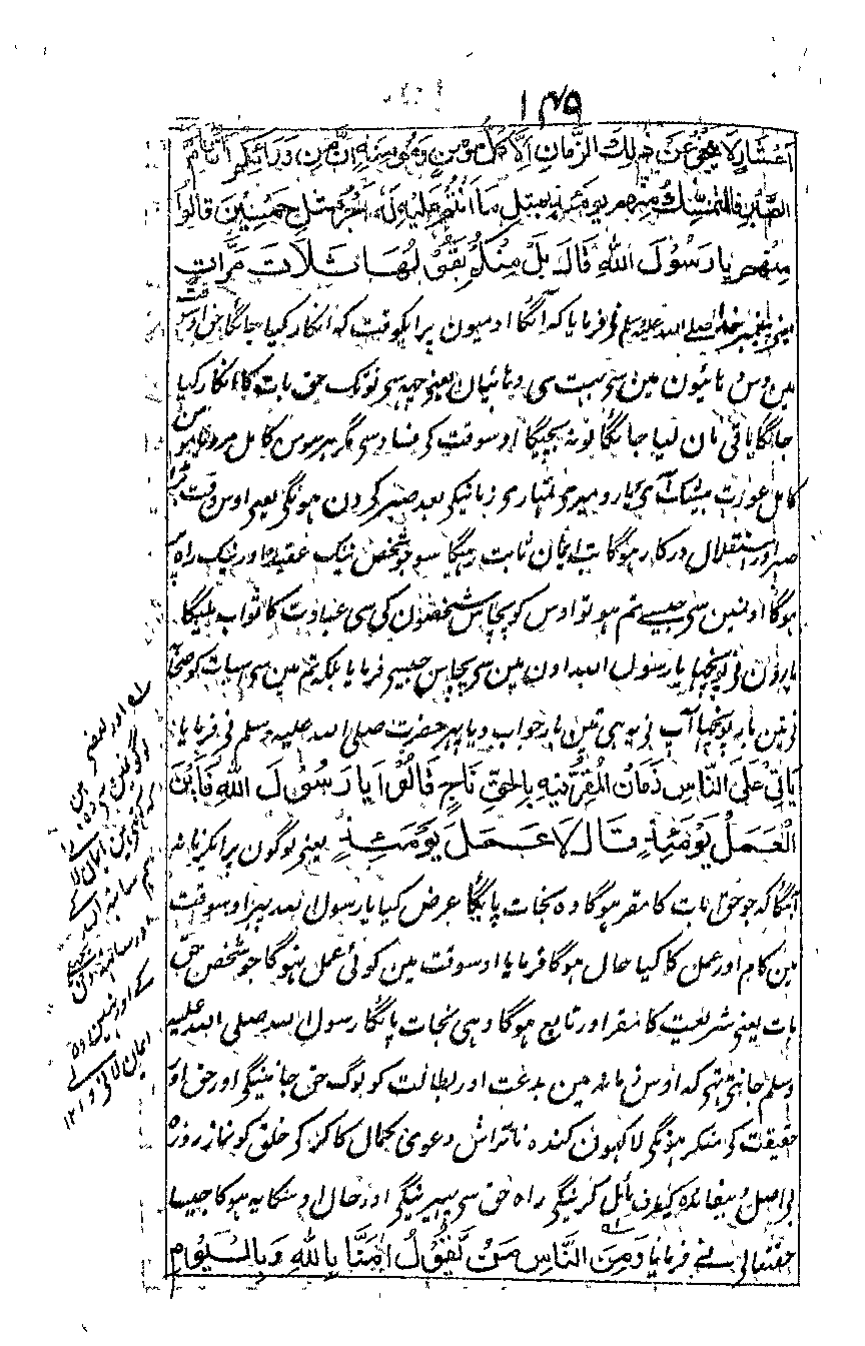 ۱۴۵
اَعشَارٍ لَا ينجُو عَن ذٰلِكَ الزَّمَانِ اِلَّا كُلُّ مؤمِنٍ وَمُؤمِنَةٍ اِنَّ مِن وَرَائِكُم اَيَّامُ
الصَّبرِ فَالمتمَسِّكُ مِنهم يَومَئِذٍ بِمِثلِ مَا اَنتُم عَلَيهِ لَهُ اَجرُ مِثلِ خَمسِينَ قَالُوا
مِنهم يَا رَسُولَ اللهِ قَالَ بَل مِنكُم يَقُولُهَا ثَلَاثَ مَرَّاتٍ
یعنی پیغمبر خدا صلے اللہ علیہ وسلم نی فرمایا کہ آئگا ادمیون پر ایکوقت کہ انکار کیا جائگا حق اوس وقت
مین دس دہائیون مین سی بہت سی دہائیان یعنی حصہ سی نو تک حق بات کا انکار کیا
جائگا باقی مان لیا جائگا تو نہ بچیگا اوسوقت کی فساد سی مگر ہر مومن کامل مرد ہو
کامل عورت بیشک آگی یارو میری تمہاری زمانیکی بعد صبر کی دن ہونگی یعنی اوس وقت بڑا
صبر اور استقلال درکار ہوگا تب ایمان ثابت رہیگا سو جو شخص نیک عقیدہ اور نیک راہ پر
ہوگا اونمین سی جیسے تم ہو تو اوس کو پچاس شخصون کی سی عبادت کا ثواب ملیگا
یارون نی پونچھا یا رسول اللہ اون مین سی پچاس جیسی فرمایا بلکہ تم مین سی
نی تین بار پونچھا آپ نی یہ ہی تین بار جواب دیا پہر حضرت صلی اللہ علیہ وسلم نی فرمایا
يَاتِي عَلَى النَّاسِ زَمَانٌ المُقِرُّ فِيهِ بِالحَقِّ نَاجٍ قَالُوا يَا رَسُولَ اللهِ فَاَينَ
العَمَلُ يَومَئِذٍ قَالَ لَا عَمَلَ يَومَئِذٍ یعنی لوگون پر ایک زمانہ
آئیگا کہ جو حق بات کا مقر ہوگا وہ نجات پائگا عرض کیا یا رسول اللہ پہر اوسوقت
مین کام اور عمل کا کیا حال ہوگا فرمایا اوسوقت مین کوئی عمل نہوگا جو شخص حق
بات یعنی شریعت کا مقر اور تابع ہوگا وہی نجات پائگا رسول اللہ صلی اللہ علیہ
وسلم جانتی تہی کہ اوس زمانہ مین بدعت اور بطالت کو لوگ حق جانینگی اور حق اور
حقیقت کی منکر ہونگی لاکہون کندہ ناتراش دعوی کمال کا کر کی خلق کو نماز روزہ
بی اصل و بیفائدہ کی مائل کرینگی راہ حق سی پہیرینگی اور حال اونکا یہ ہوگا جیسا
حقتعالی نے فرمایا وَمِنَ النَّاسِ مَن يَّقُولُ اٰمَنَّا بِاللهِ وَبِاليَومِ
اور بعضی
لوگونمین وہ ہین
کہ کہتی ہین ایمان لائے
ہم ساتھ اللہ کے
اور ساتھ دن
کے اور نہین وہ
ایمان لانے والے ۱۲